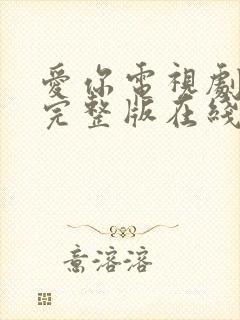 愛你電視劇
完整版在綫
意溶溶